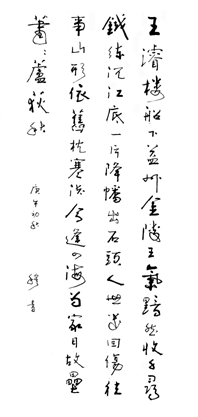 王濬樓船下益州金陵王氣黯然收千尋
鐵練沉江底一片降幡出石頭人世幾回傷往
事山形依舊枕寒流今逢四海為家日故壘
蕭々蘆荻秋
庚午初秋 穆青